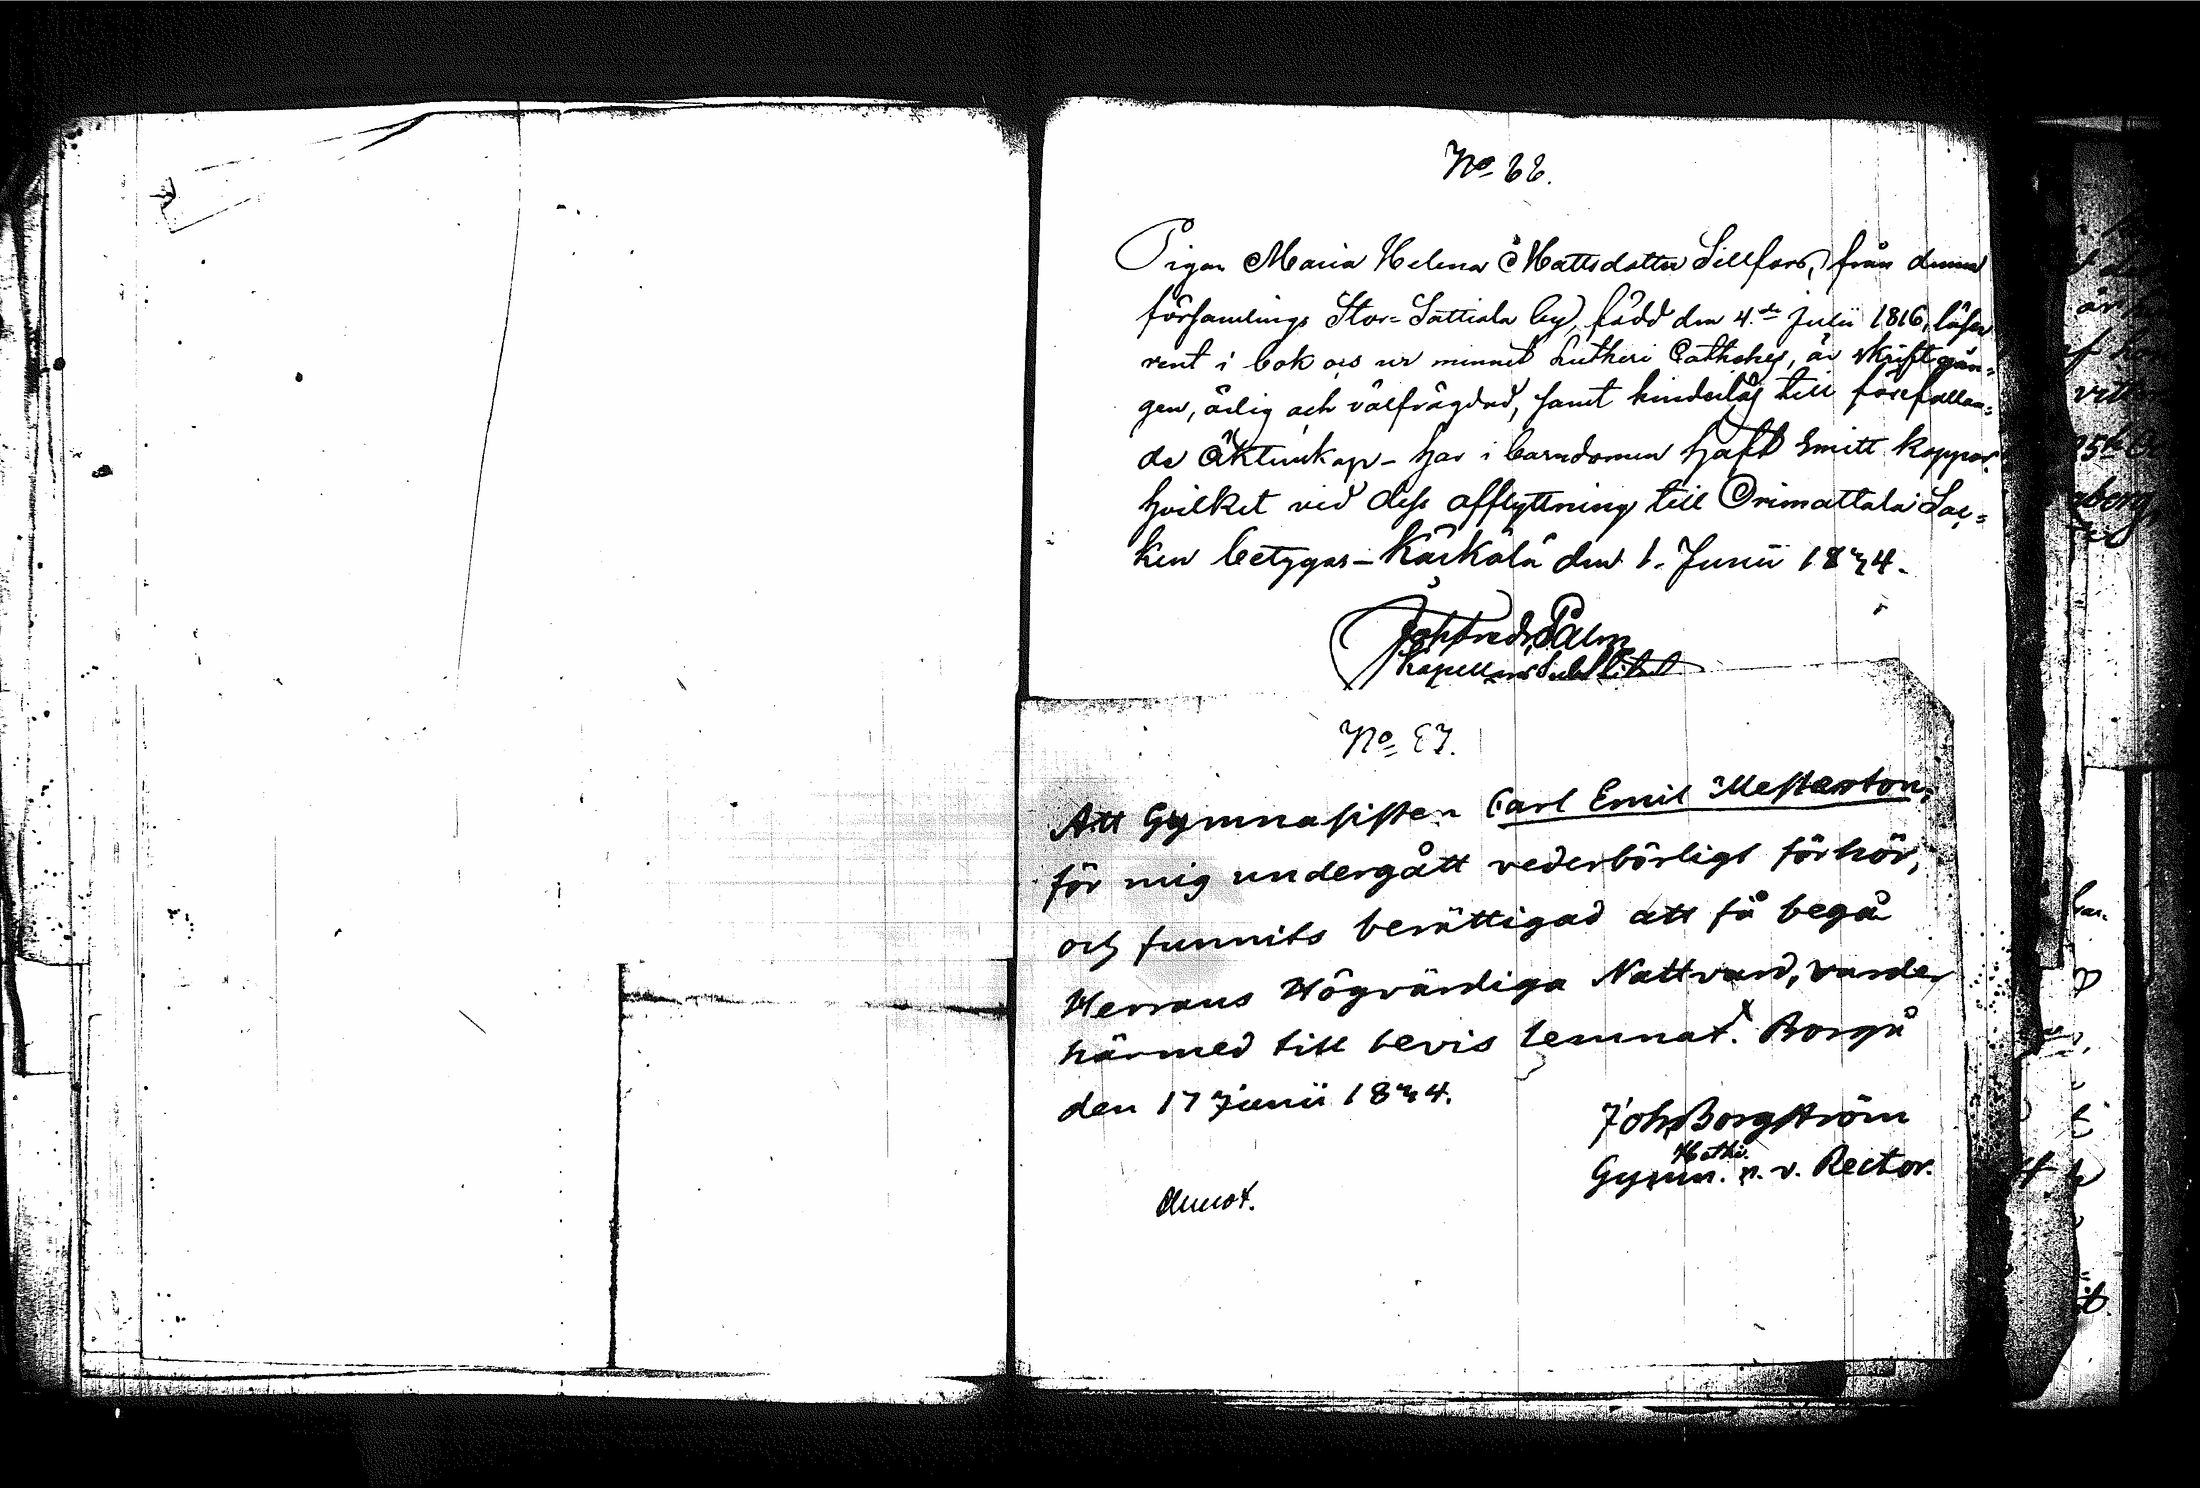 No 66.
Pigan Maria Helena Mattsdotter Sillfors, från denna
församlings Stor-Sattiala by, född den 4.de Julii 1816, läser
rent i bok och ur minnet Lutheri Cathches, är skriftgån=
gen, ärlig och välfrägdad, samt hinderlös till förefallan=
de Äktenskap - har i barndomen haft Smitt koppor.
hvilket vid dess afflyttning till Orimattala Soc=
ken betygas - Kärkölä den 1. Junii 1834.
Joh Fredr Palm
Kapellans Substitut
No 67.
Att Gymnasisten Carl Emil Mesterton,
för mig undergått vederbörligt förhör,
och funnits berättigad att få begå
Herrans Högvärdiga Nattvard, varder
härmed till bevis lemnat. Borgå
den 17 Junii 1834.
Joh. Borgström
Math.
Gymn. n. v. Rector.
Annot.